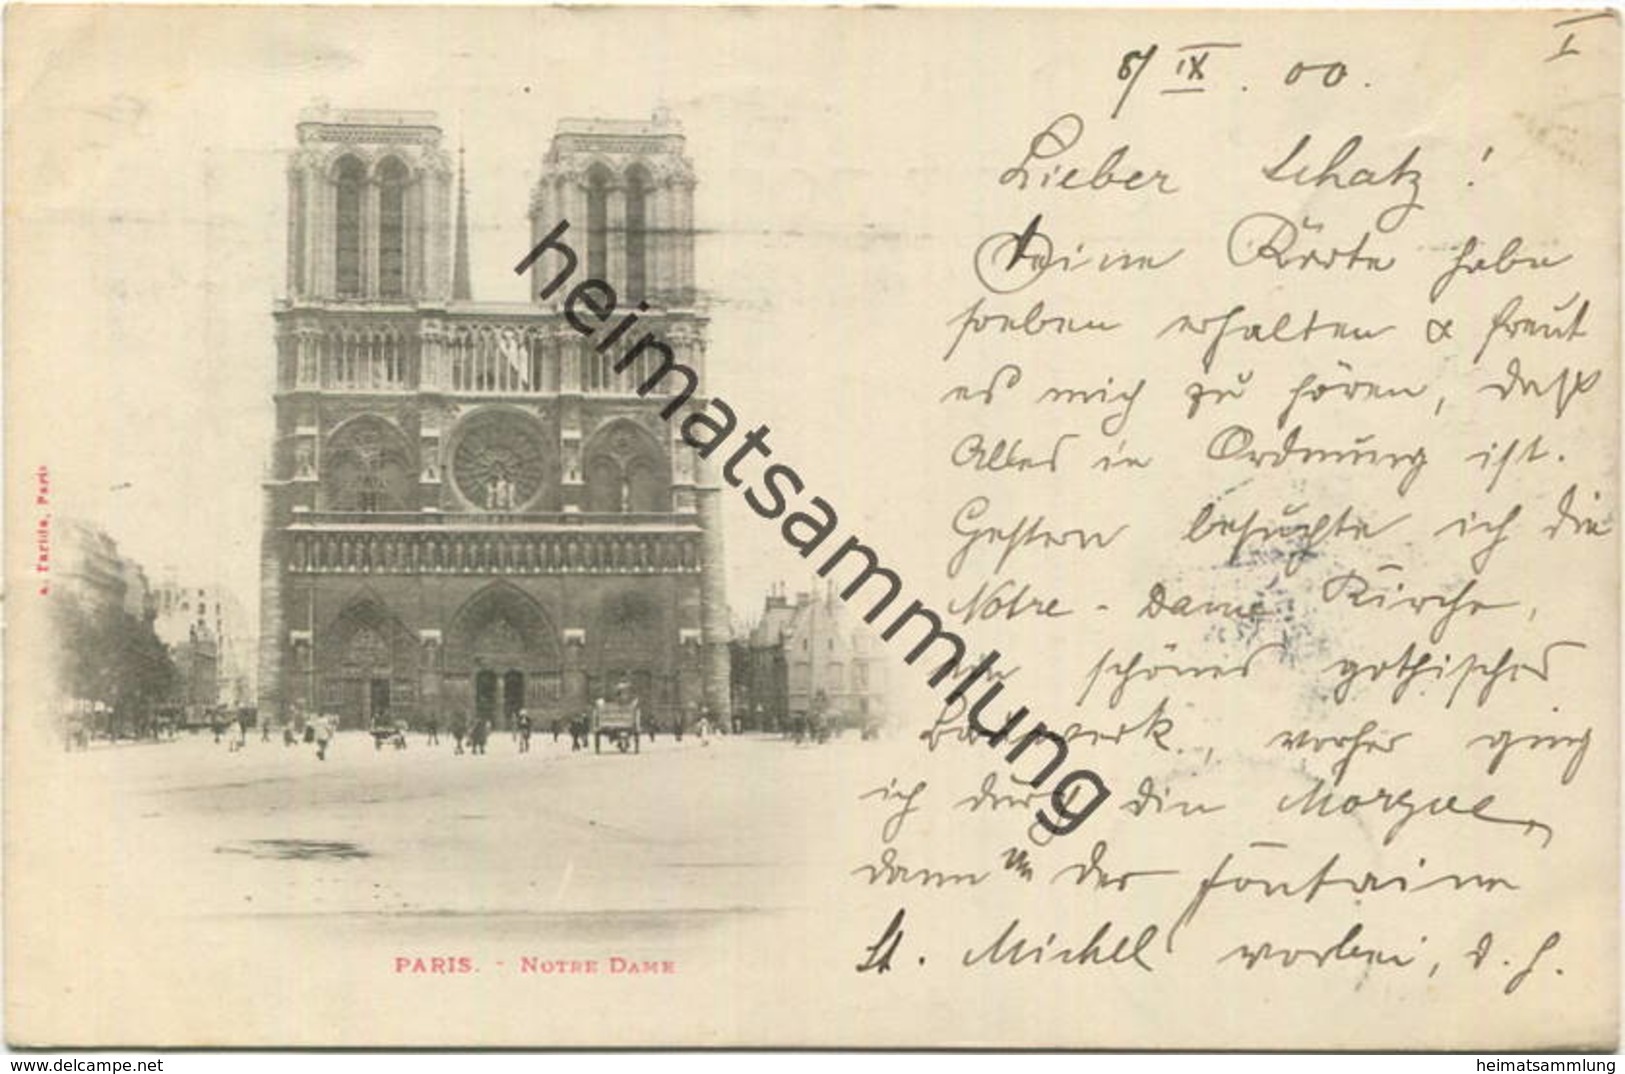 I
8/IX. 00.
Lieber Schatz!
Deine Karte habe
soeben erhalten & freut
es mich zu hören, daß
Alles in Ordnung ist.
Gestern besuchte ich die
Notre-Dame Kirche,
ein schönes gothisches
Bauwerk, vorher ging
ich durch die Morgue,
dann an der Fontaine
St. Michel vorbei, d.h.
A. Taride, Paris
PARIS. - NOTRE DAME
heimatsammlung
delcampe.net
heimatsammlung